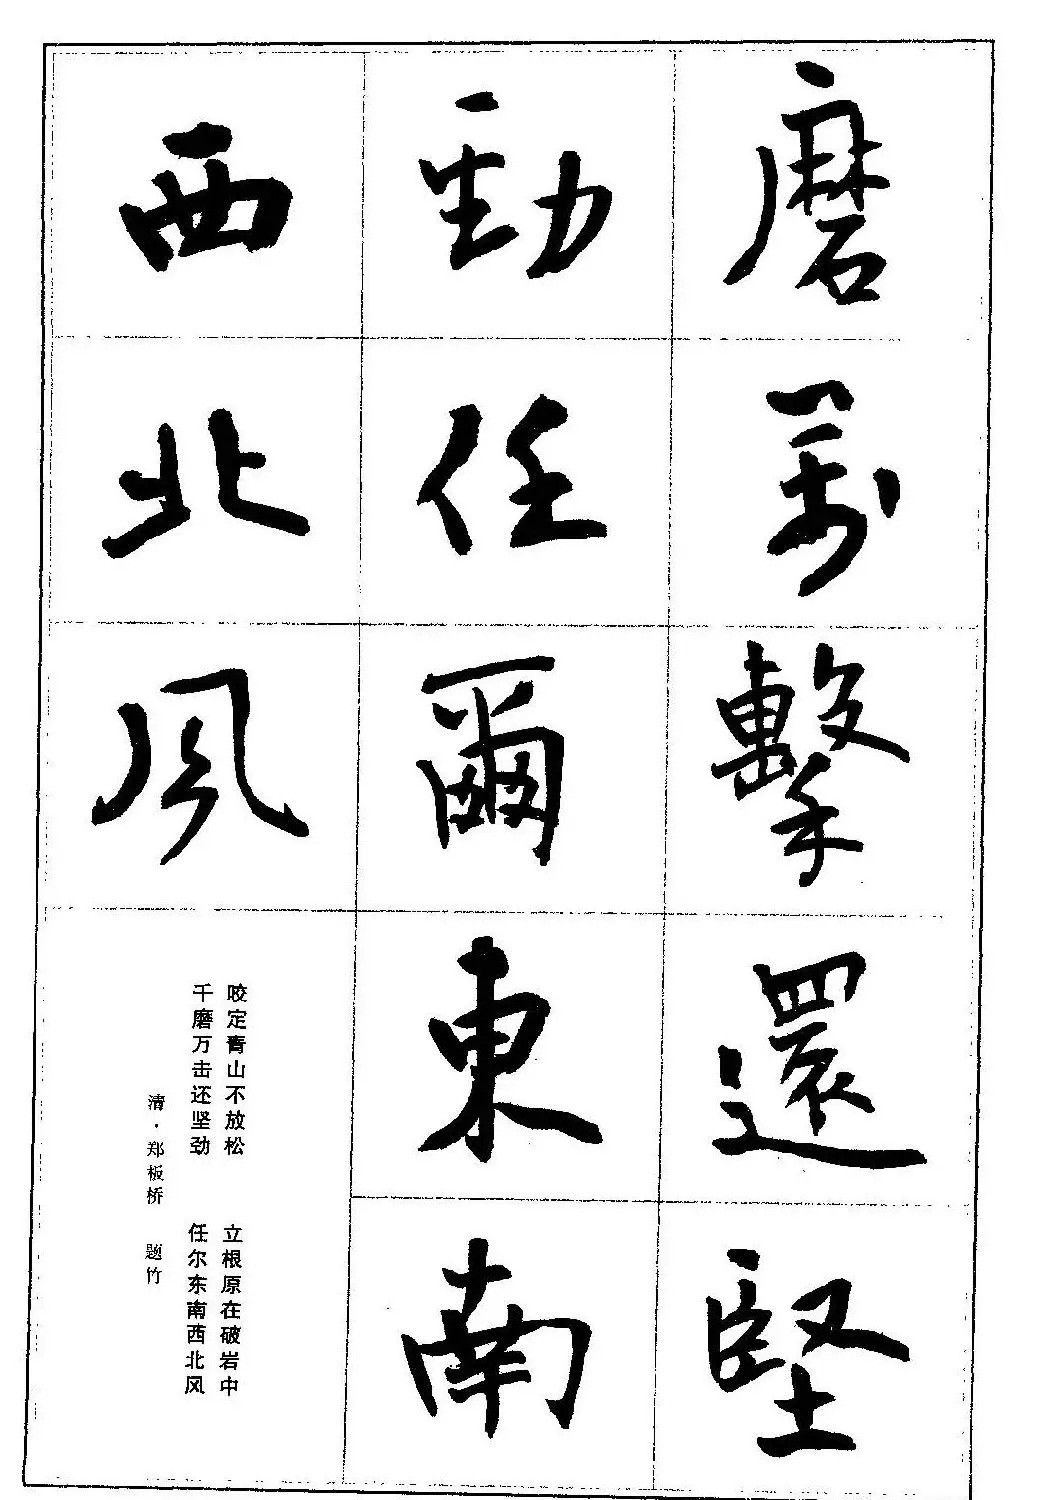 磨萬擊還堅
勁任爾東南
西北风
咬定青山不放松 立根原在破岩中
千磨万击还坚劲 任尔东南西北风
清·郑板桥 题竹